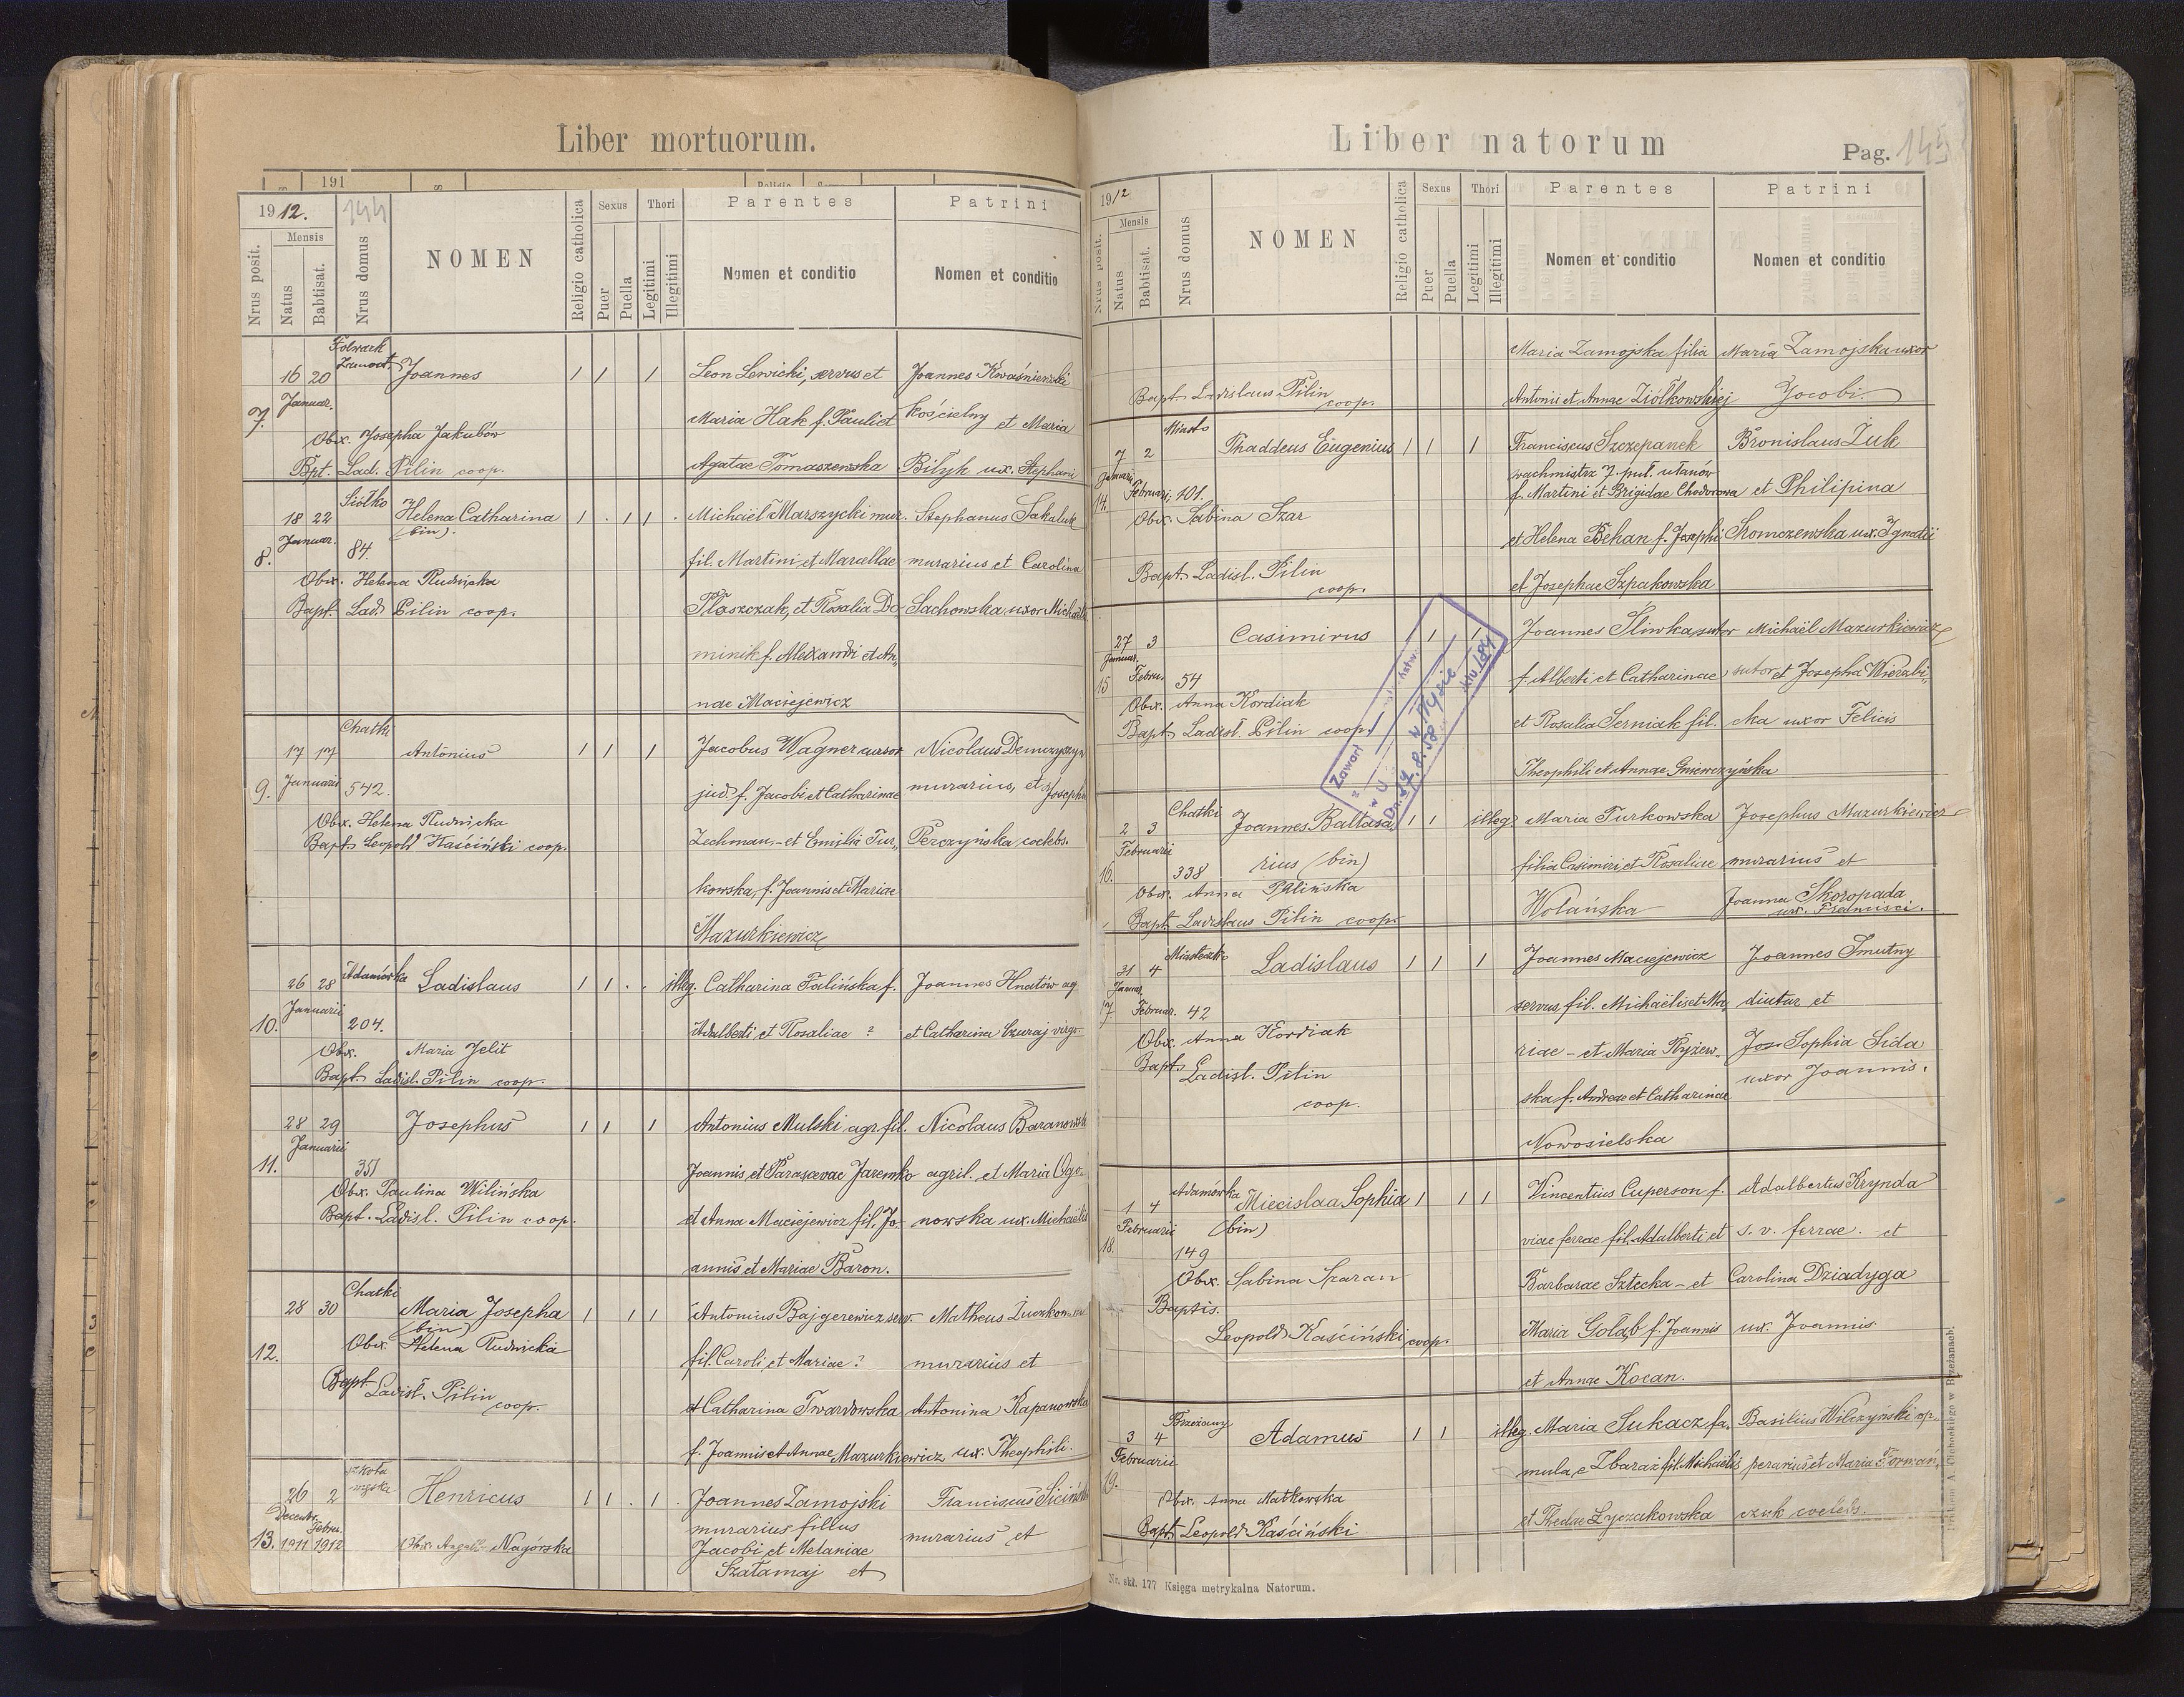 Liber mortuorum.
191
1912.
144
Nrus posit.
Mensis
Natus
Babtisat.
Nrus domus
NOMEN
Religio catholica
Sexus
Puer
Puella
Thori
Legitimi
Illegitimi
Parentes
Nomen et conditio
Patrini
Nomen et conditio
7.
16 20
Januar.
Folwark
Joannes
1 1 1
Obx. Josepha Jakubów
Bpt. Lad. Pilin coop.
Leon Lewicki, servus et
Maria Hak f. Pauli et
Agatae Tomaszewska
Joannes Kwaśniewski
kościelny et Maria
Bilyk ux. Stephani
8.
18 22
Januar.
Siółko
84.
Helena Catharina
(bin).
1 . 1 1 .
Obx. Helena Rudnicka
Bapt. Lad. Pilin coop.
Michaël Marszycki mur.
fil. Martini et Marcellae
Ptaszczak, et Rosalia Do-
minik f. Alexandri et An-
nae Maciejewicz
Stephanus Sakaluk
murarius et Carolina
Sachowska uxor Michaëlis
9.
17 17
Januarii
Chatki
542.
Antonius
1 1 1
Obx. Helena Rudnicka
Bapt. Leopold Kaściński coop.
Jacobus Wagner cursor
jud. f. Jacobi et Catharinae
Zechman - et Emilia Tur-
kowska, f. Joannis et Mariae
Mazurkiewicz
Nicolaus Demczyszyn
murarius, et Josepha
Perczyńska coelebs.
10.
26 28
Januarii
Adamówka
204.
Ladislaus
1 1 . . illeg.
Obx. Maria Jelit
Bapt. Ladisl. Pilin coop.
Catharina Falińska f.
Adalberti et Rosaliae ?
Joannes Hnatów ag.
et Catharina Czuraj virgo
11.
28 29
Januarii
351
Josephus
1 1 1
Obx. Paulina Wilińska
Bapt. Ladisl. Pilin coop.
Antonius Mulski agr. fil.
Joannis et Parascevae Jaremko
et Anna Maciejewicz fil. Jo-
annis et Mariae Baron.
Nicolaus Baranowski
agril. et Maria Ogo-
nowska ux. Michaëlis
12.
28 30
Chatki
Maria Josepha
(bin)
1 1 1
Obx. Helena Rudnicka
Bapt. Ladisl. Pilin
coop.
Antonius Bajgerewicz serv.
fil. Caroli et Mariae ?
et Catharina Twardowska
f. Joannis et Annae Mazurkiewicz
Matheus
murarius et
Antonina Kapanowska
ux. Theophili.
13.
26 2
Decembr. Febru.
1911 1912
szkoła
Henricus
1 1 . 1 .
Obx. Nagórska
Joannes Zamojski
murarius filius
Jacobi et Melaniae
Szatamaj et
Franciscus Siciński
murarius et
Liber natorum
Pag. 145
1912
Nrus posit.
Mensis
Natus
Babtisat.
Nrus domus
NOMEN
Religio catholica
Sexus
Puer
Puella
Thori
Legitimi
Illegitimi
Parentes
Nomen et conditio
Patrini
Nomen et conditio
Bapt. Ladislaus Pilin
coop.
Maria Zamojska filia
Antonii et Annae Ziółkowskiej
Maria Zamojska uxor
Jacobi.
14.
7 2
Januarii Februarii
Miasto
101.
Thaddeus Eugenius
1 1 1
Obx. Sabina Szar
Bapt. Ladisl. Pilin
coop.
Franciscus Szczepanek
wachmistrz 7. puł. ułanów
f. Martini et Brigidae Chodorowa
et Helena Behan f. Josephi
et Josephae Szpakowska
Bronislaus Żuk
et Philipina
Skomczewska ux. Ignatii
15
27 3
Januar. Febru.
54
Casimirus
1 1
Obx. Anna Kordiak
Bapt. Ladisl. Pilin coop.
Joannes Śliwka sutor
f. Alberti et Catharinae
et Rosalia Serniak fil.
Theophili et Annae Gniewczyńska
Michaël Mazurkiewicz
sutor et Josepha Wierzbi-
cka uxor Felicis
Zawarł
w U
w Nysie
Dn. 8.58
aktu 184
16.
2 3
Februarii
Chatki
338
Joannes Baltasa-
rius (bin)
1 1 illeg.
Obx. Anna Palińska
Bapt. Ladislaus Pilin coop.
Maria Turkowska
filia Casimiri et Rosaliae
Wolańska
Josephus Mazurkiewicz
murarius et
Joanna Skoropada
ux. Francisci.
17
31 4
Januar. Februar.
Miasteczko
42
Ladislaus
1 1 1
Obx. Anna Kordiak
Bapt. Ladisl. Pilin
coop.
Joannes Maciejewicz
servus, fil. Michaëlis et Ma-
riae - et Maria Ryżew-
ska f. Andreae et Catharinae
Nowosielska
Joannes Smutny
diutur et
Sophia Sida
uxor Joannis.
18.
1 4
Februarii
Adamówka
149
Miecislaa Sophia
(bin)
1 1 1
Obx. Sabina Szaran
Baptis.
Leopold Kaściński coop.
Vincentius Cuperson f.
viae ferrae fil. Adalberti et
Barbarae Sztecka - et
Maria Gołąb f. Joannis
et Annae Kocan.
Adalbertus Krynda
s. v. ferrae. et
Carolina Dziadyga
ux. Joannis.
19.
3 4
Februarii
Brzeżany
Adamus
1 1 illeg.
Obx. Anna Matkowska
Bapt. Leopold Kaściński
Maria Sukacz fa-
mula, e Zbaraż fil. Michaëlis
et Theclae Łyczakowska
Basilius Wilczyński op-
perarius et Maria Forman-
czuk coelebs.
Nr. skł. 177 Księga metrykalna Natorum.